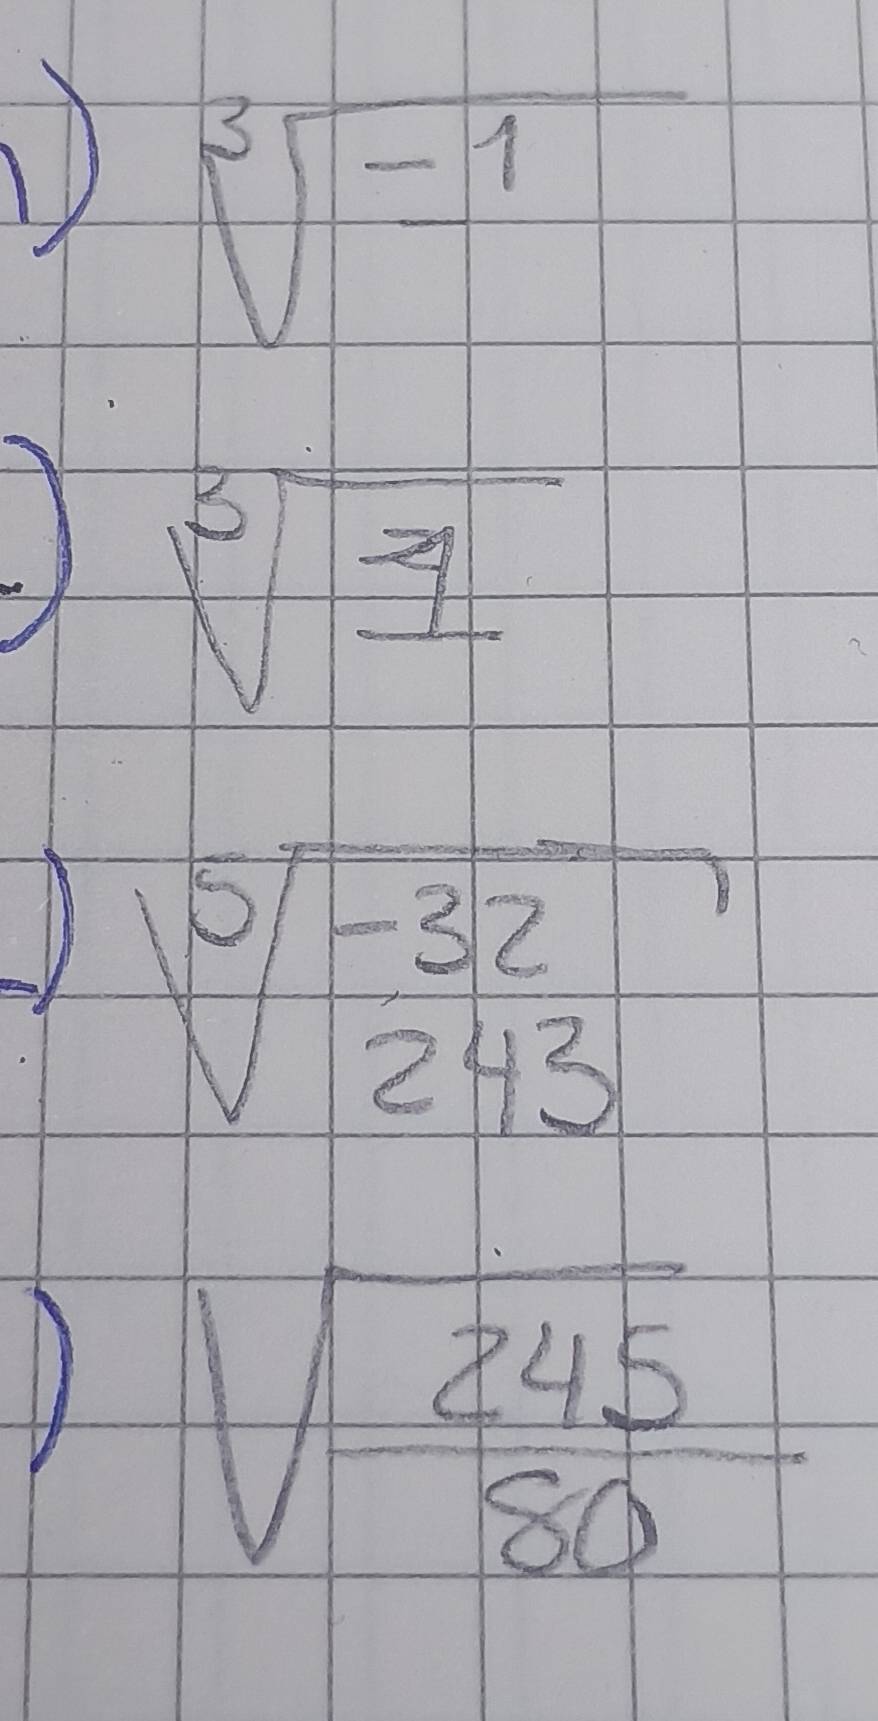 ) ∛-1
) ∛1
) ⁵√-32
243
) √245
80